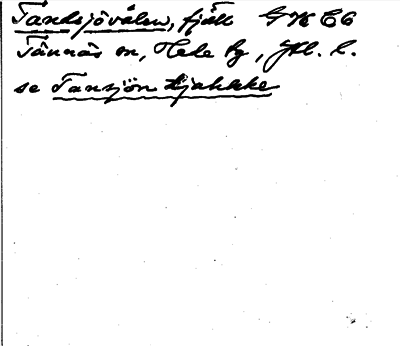 Tandsjövålen, fjäll G K C6
Tännäs sn, Hede tg, Jtl. l.
se Tansjön tjahkke